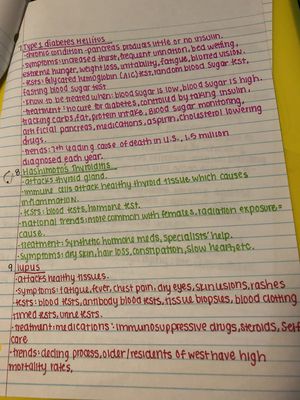 7 Type 1 diabetes Mellitus
-chronic condition-pancreas produces little or no insulin.
-symptoms:increased thirst, frequent urination, bed wetting,
extreme hunger, weight loss, irritability, fatigue, blurred vision.
-tests: glycated hemoglobin (A1C) test, random blood sugar test,
fasting blood sugar test
-know to be treated when: blood sugar is low, blood sugar is high.
-treatment: no cure for diabetes, controlled by taking insulin,
tracking carbs, fat, protein intake, Blood sugar monitoring,
artificial pancreas, medications, aspirin, cholesterol lowering
drugs.
-trends: 7th leading cause of death in U.S., 1.5 million
diagnosed each year.
8 Hashimotos Thyroiditis
-attacks thyroid gland.
-immune cells attack healthy thyroid tissue which causes
inflammation.
-tests: blood tests, hormone test.
-national trends: more common with females, radiation exposure =
cause.
-treatment: synthetic hormone meds, specialists' help.
-symptoms: dry skin, hair loss, constipation, slow heart, etc.
9 lupus
-attacks healthy tissues.
-symptoms: fatigue, fever, chest pain, dry eyes, skin lesions, rashes
-tests: blood tests, antibody blood tests, tissue biopsies, blood clotting
timed tests, urine tests.
-treatment: medications: immunosuppressive drugs, steroids, self
care
-trends: process, older/residents of west have high
mortality rates,